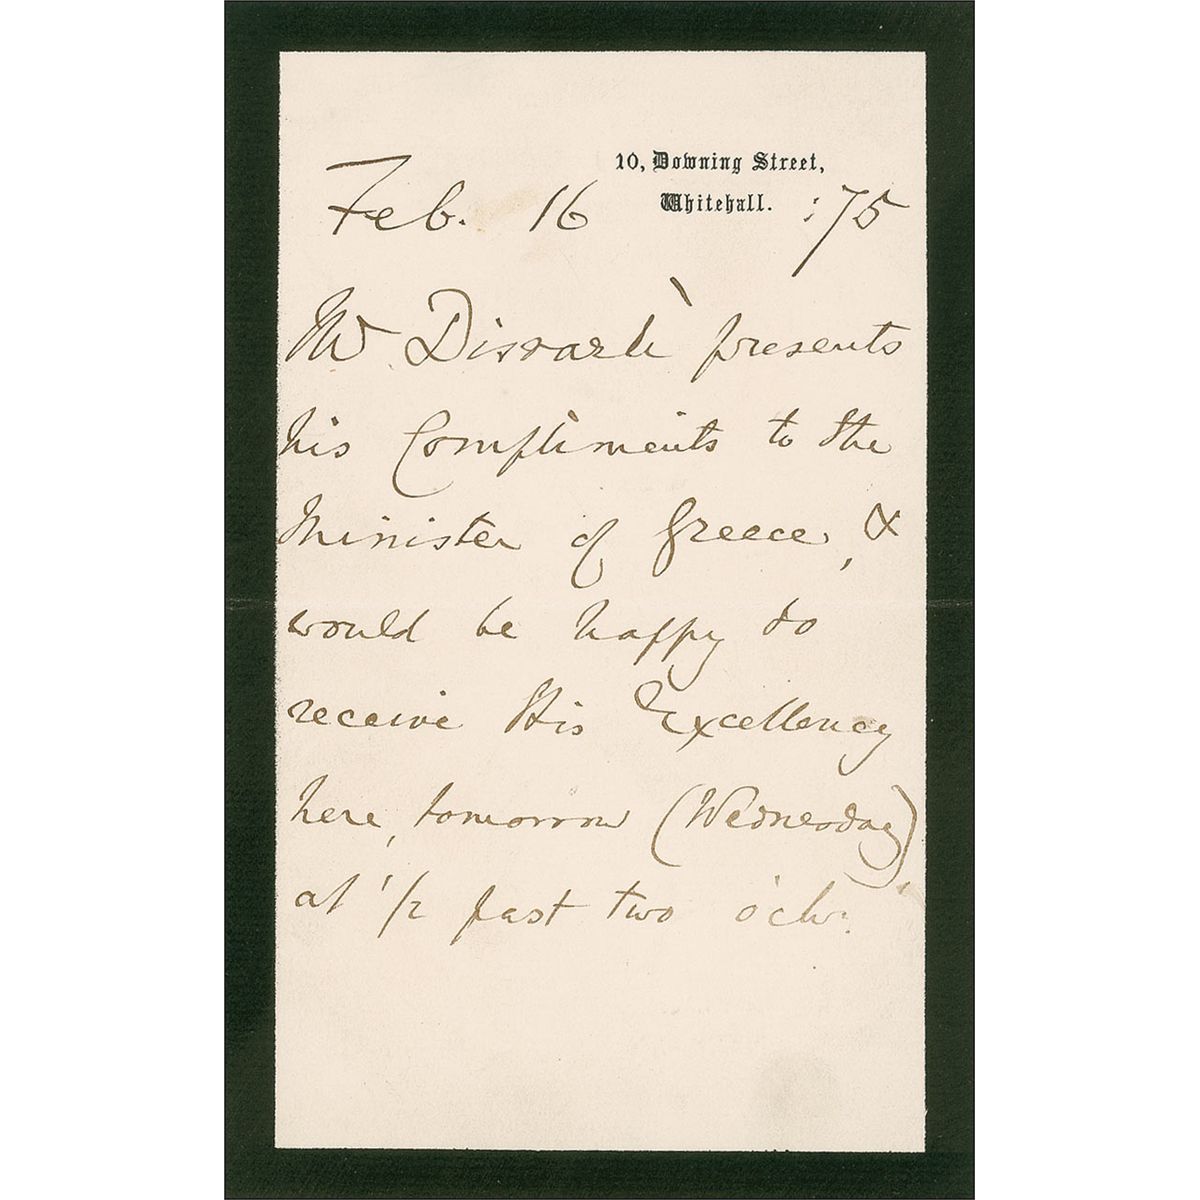 10, Downing Street,
Whitehall.
Feb. 16 :75
Mr Disraeli presents
his Compliments to the
Minister of Greece, &
would be happy to
receive His Excellency
here, tomorrow (Wednesday)
at 1/2 past two o'ck: